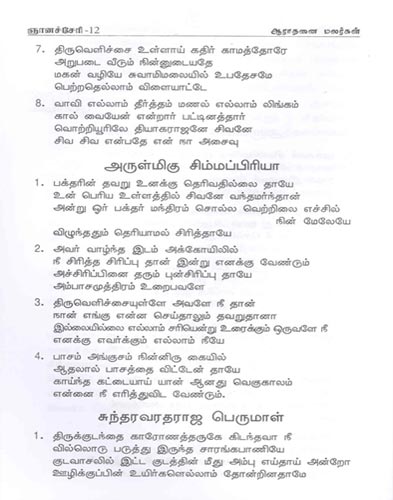 ஞானச்சேரி -12
ஆராதனை மலர்கள்
7. திருவெளிச்சை உள்ளாய் கதிர் காமத்தோரே
அறுபடை வீடும் நின்னுடையதே
மகன் வழியே சுவாமிமலையில் உபதேசமே
பெற்றதெல்லாம் விளையாட்டே
8. வாவி எல்லாம் தீர்த்தம் மணல் எல்லாம் லிங்கம்
கால் வையேன் என்றார் பட்டினத்தார்
வொற்றியூரிலே தியாகராஜனே சிவனே
சிவ சிவ என்பதே என் நா அசைவு
அருள்மிகு சிம்மப்பிரியா
1. பக்தரின் தவறு உனக்கு தெரிவதில்லை தாயே
உன் பெரிய உள்ளத்தில் சிவனே வந்தமர்ந்தான்
அன்று ஓர் பக்தர் மந்திரம் சொல்ல வெற்றிலை எச்சில்
நின் மேலேயே
விழுந்ததும் தெரியாமல் சிரித்தாயே
2. அவர் வாழ்ந்த இடம் அக்கோயிலில்
நீ சிரித்த சிரிப்பு தான் இன்று எனக்கு வேண்டும்
அச்சிரிப்பினை தரும் புன்சிரிப்பு தாயே
அம்பாசமுத்திரம் உறைபவளே
3. திருவெளிச்சையுள்ளே அவளே நீ தான்
நான் எங்கு என்ன செய்தாலும் தவறுதானா
இல்லையில்லை எல்லாம் சரியென்று உரைக்கும் ஒருவளே நீ
எனக்கு எவர்க்கும் எல்லாம் நீயே
4. பாசம் அங்குசம் நின்னிரு கையில்
ஆதலால் பாசத்தை விட்டேன் தாயே
காய்ந்த கட்டையாய் யான் ஆனது வெகுகாலம்
என்னை நீ எரித்துவிட வேண்டும்.
சுந்தரவரதராஜ பெருமாள்
1. திருக்குடந்தை காரோணத்தருகே கிடந்தவா நீ
வில்லொடு படுத்து இருந்த சாரங்கபாணியே
குடவாசலில் இட்ட குடத்தின் மீது அம்பு எய்தாய் அன்றோ
ஊழிக்குப்பின் உயிர்களெல்லாம் தோன்றினதாமே